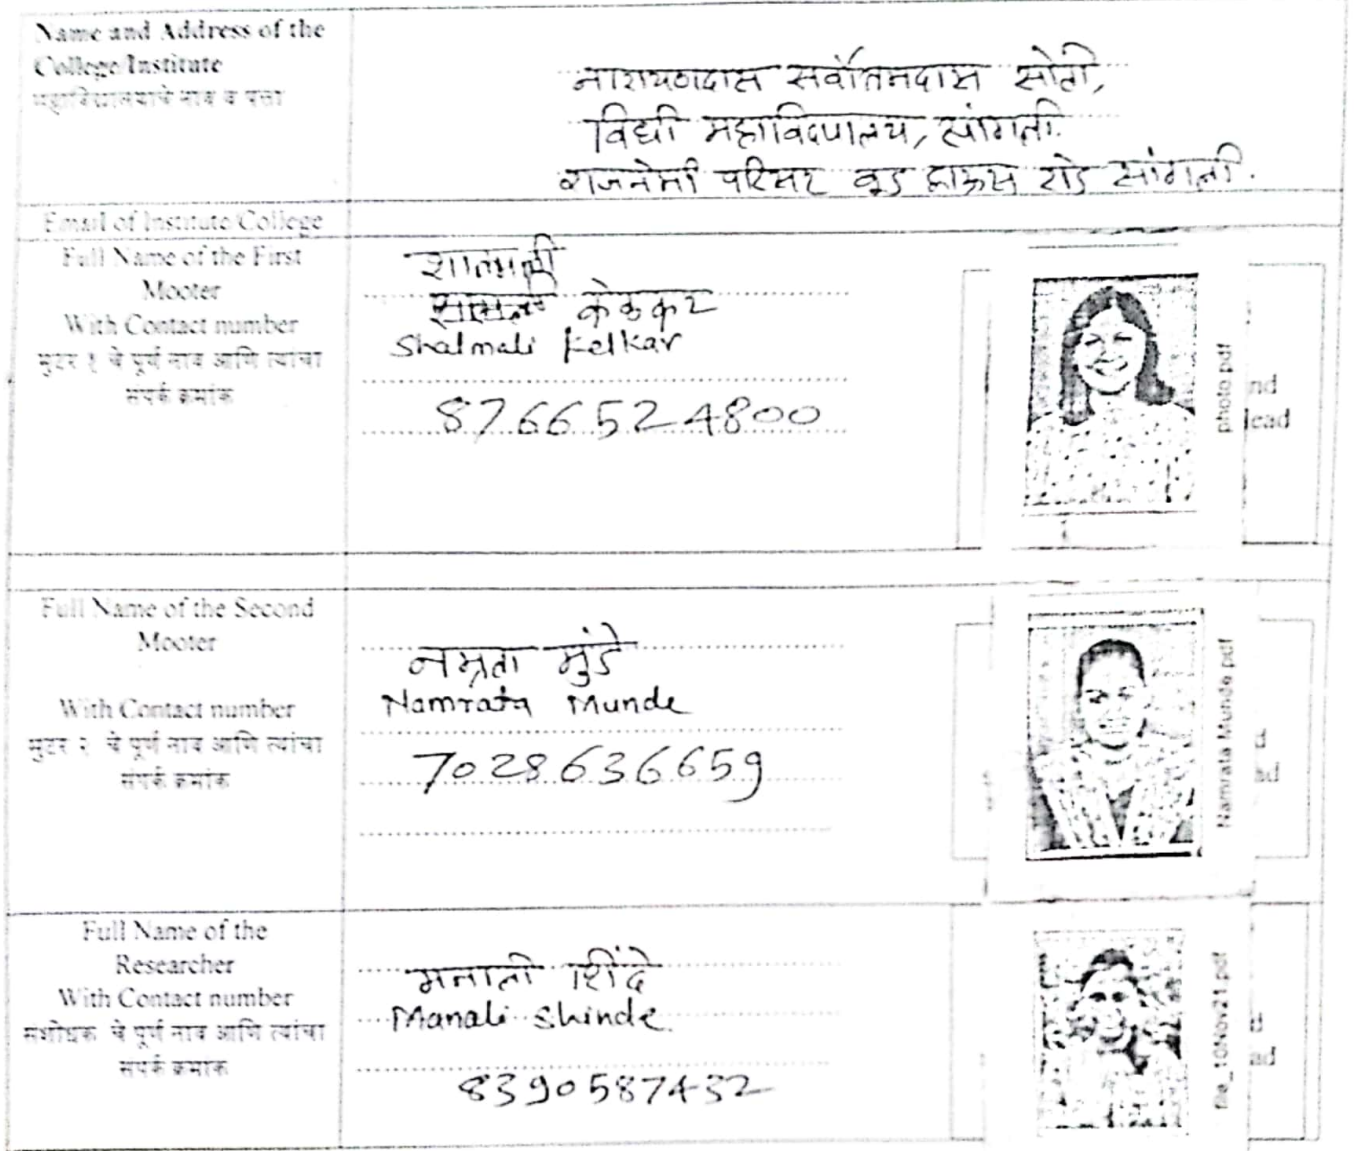 Name and Address of the
College/Institute
महाविद्यालयाचे नाव व पत्ता
नारायणदास सर्वोतमदास सोती,
विधी महाविदयालय, सांगली.
राजनेमी परिसर वूड हाऊस रोड सांगली.
Email of Institute/College
Full Name of the First
Mooter
With Contact number
मुटर १ चे पूर्ण नाव आणि त्यांचा
संपर्क क्रमांक
शाल्मली
केळकर
Shalmali Kelkar
8766524800
photo.pdf
nd
lead
Full Name of the Second
Mooter
With Contact number
मुटर २ चे पूर्ण नाव आणि त्यांचा
संपर्क क्रमांक
नम्रता मुंडे
Namrata Munde
7028636659
Namrata Munde.pdf
d
ad
Full Name of the
Researcher
With Contact number
संशोधक चे पूर्ण नाव आणि त्यांचा
संपर्क क्रमांक
मनाली शिंदे
Manali Shinde.
8390587432
file_10Nov21.pdf
d
ad